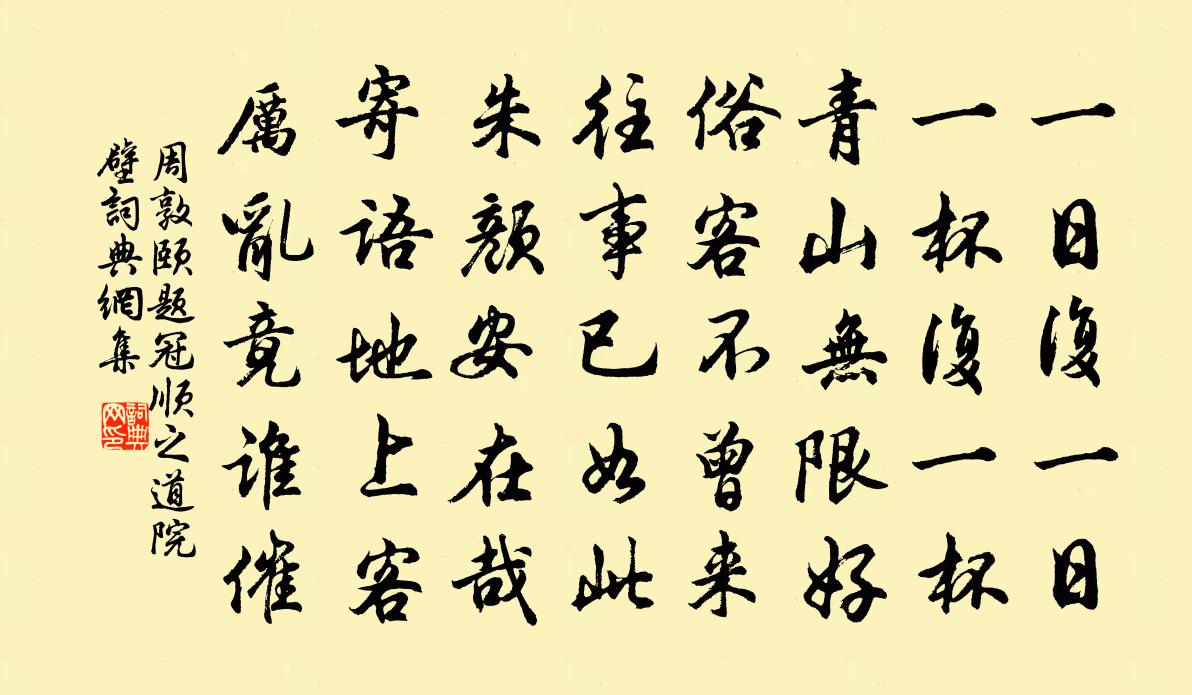 一日復一日
一杯復一杯
青山無限好
俗客不曾来
往事已如此
朱顏安在哉
寄語地上客
厲亂竟誰催
周敦頤题冠順之道院
壁詞典網集
詞典
网印